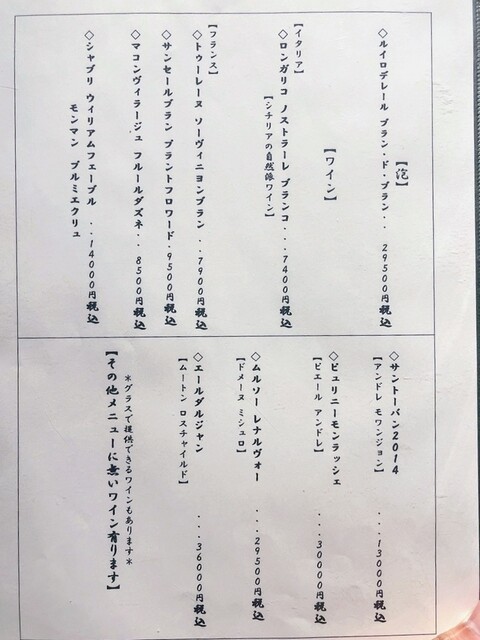 【泡】
◇ルイロデレール ブラン・ド・ブラン・・29500円税込
【ワイン】
【イタリア】
◇ロンガリコ ノストラーレ ブランコ・・・7400円税込
【シチリアの自然派ワイン】
【フランス】
◇トゥーレーヌ ソーヴィニヨンブラン・・7900円税込
◇サンセールブラン ブラントフロワード・9500円税込
◇マコンヴィラージュ フルールダズネ・・8500円税込
◇シャブリ ウィリアムフェーブル・・14000円税込
モンマン プルミエクリュ
◇サントーバン2014
【アンドレ モワンジョン】
・・・13000円税込
◇ピュリニーモンラッシェ
【ピエール アンドレ】
・・・30000円税込
◇ムルソー レナルヴォー
【ドメーヌ ミシュロ】
・・・29500円税込
◇エールダルジャン
【ムートン ロスチャイルド】
・・・36000円税込
＊グラスで提供できるワインもあります＊
【その他メニューに無いワイン有ります】